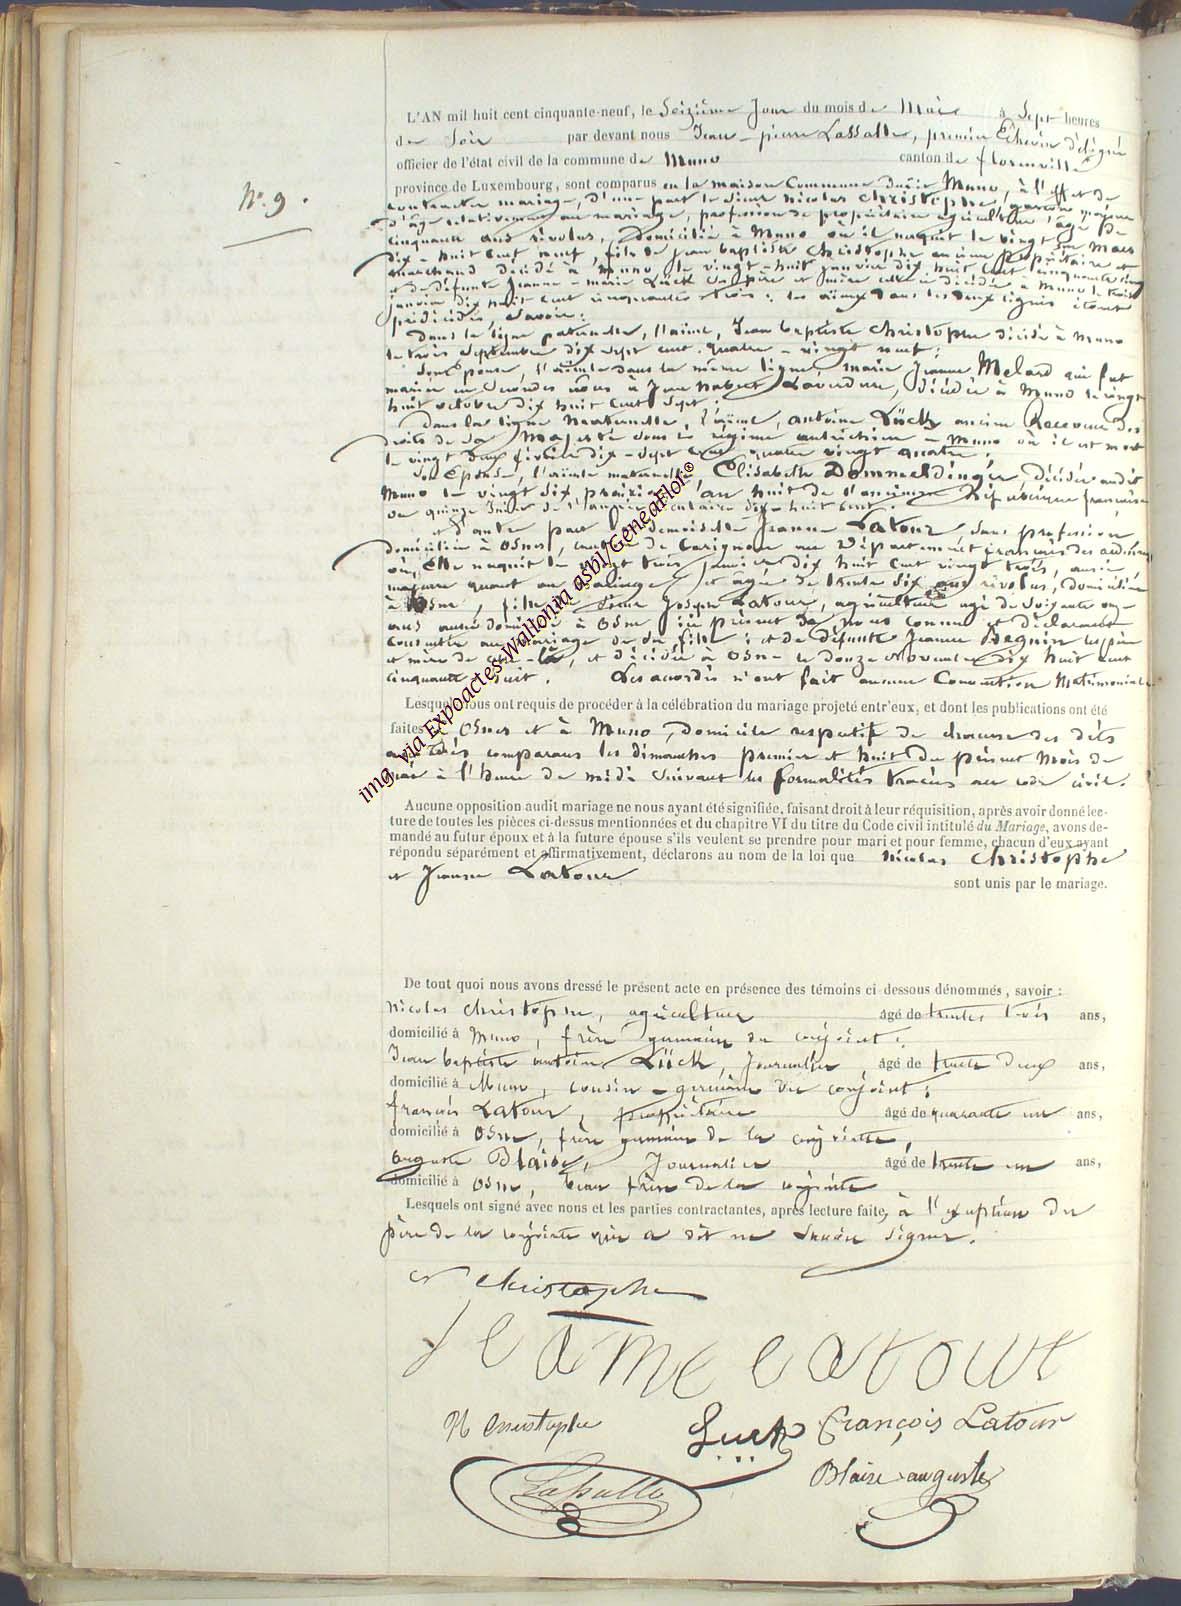 N°. 9.
L'AN mil huit cent cinquante-neuf, le Seizième Jour du mois de Mai à Sept heures
du Soir par devant nous Jean-pierre Lassalle, premier Echevin délégué
officier de l'état civil de la commune de Muno canton de florenville
province de Luxembourg, sont comparus en la maison Commune dudit Muno, à l'effet de
contracter mariage, d'une part le sieur nicolas Christophe, garçon majeur
d'âge relativement au mariage, profession de propriétaire agriculteur, âgé de
cinquante ans révolus, Domicilié à Muno où il naquit le vingt six Mars
dix-huit cent neuf, fils de Jean baptiste Christophe ancien propriétaire et
marchand décédé à Muno le vingt-huit janvier dix huit cent cinquante cinq
et de défunte Jeanne-marie Lück ses père et mère celle-ci décédée à Muno le trois
janvier dix huit cent cinquante trois; les aïeux dans les deux lignes étant
prédécédés, savoir:
Dans la ligne paternelle, l'aïeul, Jean baptiste Christophe décédé à Muno
le trois Septembre dix-sept cent quatre-vingt neuf;
Son Epouse, l'aïeule dans la même ligne, marie Jeanne Melard qui fut
mariée en secondes noces à Jean Laverdure, décédée à Muno le vingt
huit octobre dix huit cent sept;
Dans la ligne Maternelle, l'aïeul, antoine Lück ancien Receveur des
droits de Sa Majesté sous le régime autrichien à Muno où il est mort
le vingt deux février dix-sept cent quatre vingt quatre;
Son Epouse, l'aïeule maternelle Elisabeth Dommeldinger, décédée audit
Muno le vingt six prairial an huit de l'ancienne République française
ou quinze Juin de l'année dix-huit cent.
et d'autre part la demoiselle Jeanne Latour sans profession
domiciliée à Osnes, canton de Carignan au Département français des ardennes
où Elle naquit le vingt trois janvier dix huit cent vingt trois, aussi
majeure quant au mariage et âgée de trente six ans révolus, domiciliée
à Osne, fille de Sieur Joseph Latour, agriculteur agé de soixante
ans aussi domicilié à Osne ici présent de nous connu et déclarant
consentir au mariage de sa fille; et de défunte Jeanne Beguin ses père
et mère de celle-là, et décédée à Osne le douze Novembre dix huit cent
cinquante huit. Les accordés n'ont fait aucune Convention Matrimoniale
Lesquels nous ont requis de procéder à la célébration du mariage projeté entr'eux, et dont les publications ont été
faites à Osnes et à Muno, domicile respectif de chacune des dits
accordés comparans les dimanches premier et huit du présent Mois de
Mai à l'heure de midi suivant les formalités tracées au code civil.
Aucune opposition audit mariage ne nous ayant été signifiée, faisant droit à leur réquisition, après avoir donné lec-
ture de toutes les pièces ci-dessus mentionnées et du chapitre VI du titre du Code civil intitulé du Mariage, avons de-
mandé au futur époux et à la future épouse s'ils veulent se prendre pour mari et pour femme, chacun d'eux ayant
répondu séparément et affirmativement, déclarons au nom de la loi que nicolas Christophe
et Jeanne Latour
sont unis par le mariage.
De tout quoi nous avons dressé le présent acte en présence des témoins ci dessous dénommés, savoir:
nicolas Christophe, agriculteur âgé de trente trois ans,
domicilié à Muno, frère germain du conjoint;
Jean baptiste antoine Lück, Journalier, âgé de trente deux ans,
domicilié à Muno, cousin-germain du conjoint;
françois Latour, propriétaire âgé de quarante un ans,
domicilié à Osne, frère germain de la conjointe,
auguste Blaise, Journalier âgé de trente un ans,
domicilié à Osne, beau frère de la conjointe
Lesquels ont signé avec nous et les parties contractantes, après lecture faite, à l'exception du
père de la conjointe qui a dit ne savoir signer.
N Christophe
Jeanne Latour
N Christophe Luck François Latour
Lassalle Blaise auguste
img. via Expoactes-Wallonia asbl/GeneaFlor©